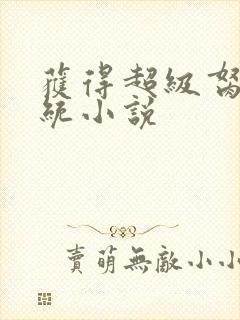 獲得超級
統小說
賣萌無敵小小